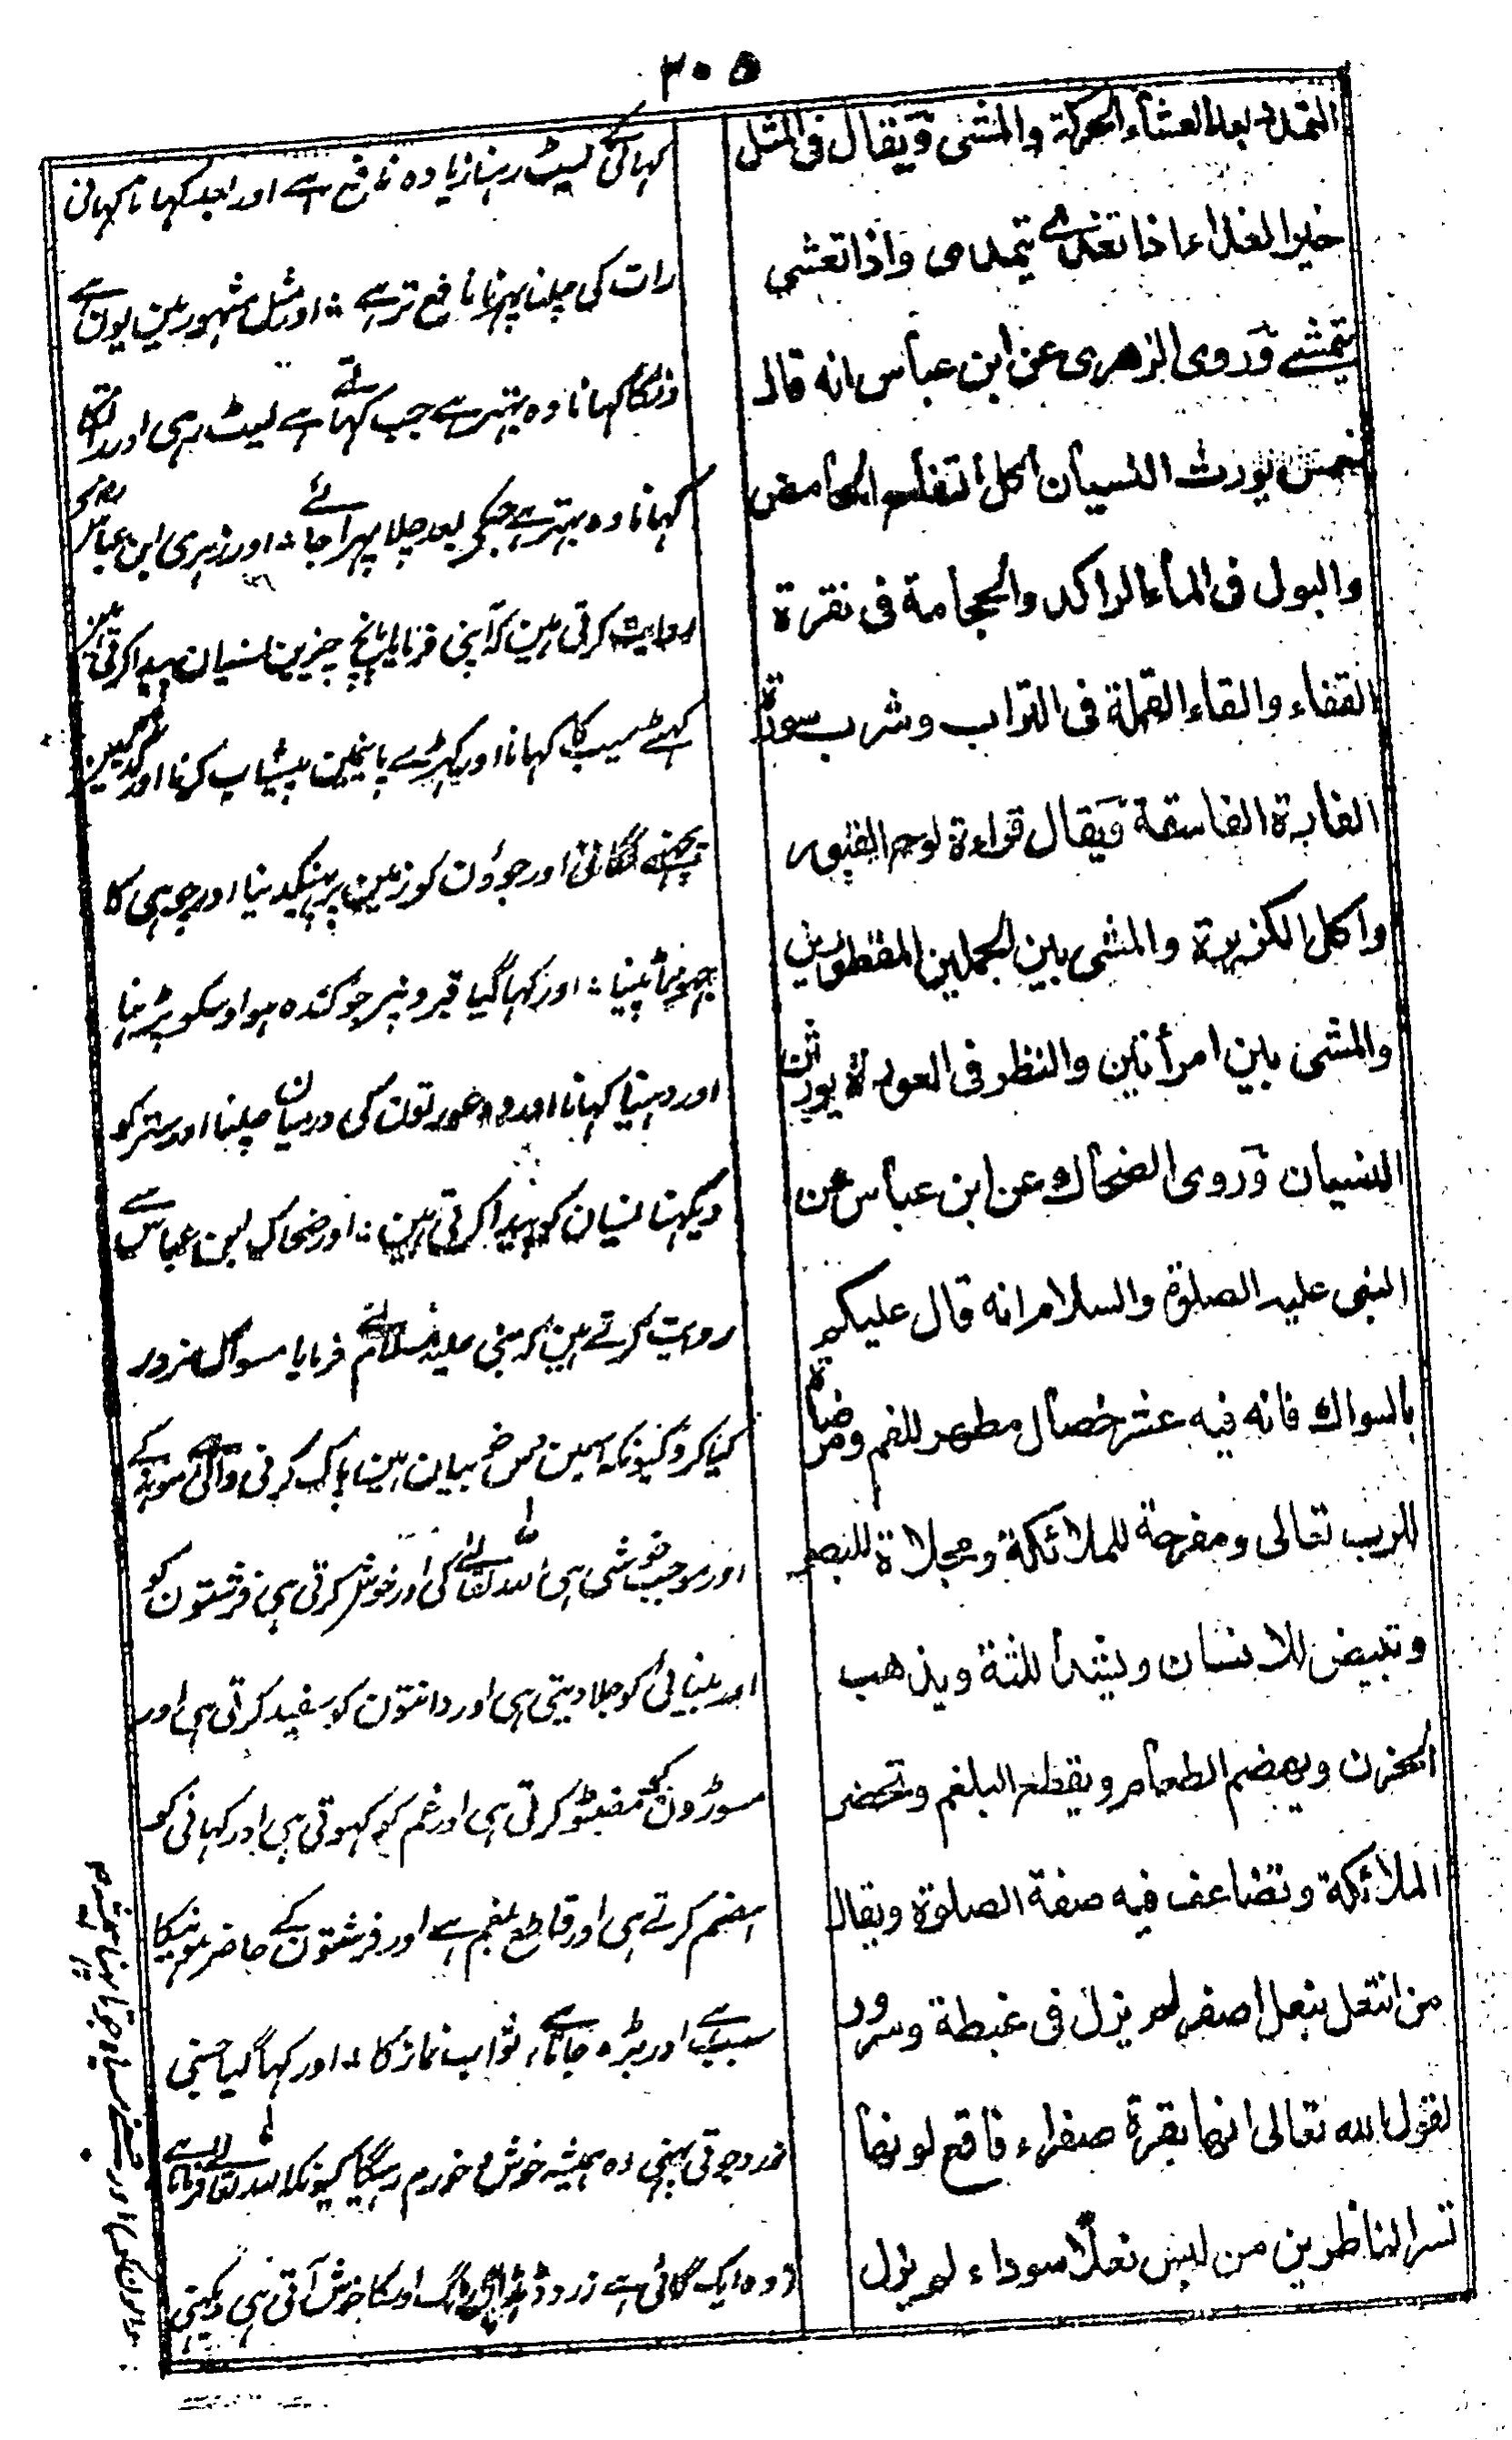 ٣٠٥
التمدد بعد العشاء الحركة والمشى ويقال فى المثل
خير الغداء اذا تغدى يتمدى واذا تعشى
يتمشے وروى الزهرى عن ابن عباس انه قال
خمس يورث النسيان اكل التفاح الحامض
والبول فى الماء الراكد والحجامة فى نقرة
القفاء والقاء القملة فى التراب وشرب سورة
الفارة الفاسقة ويقال قراءة لوح القبور
واكل الكزبرة والمشى بين الجملين المقطورين
والمشى بين امرأتين والنظر فى العورة يورثن
النسيان وروى الضحاك عن ابن عباس عن
النبى عليه الصلوة والسلام انه قال عليكم
بالسواك فانه فيه عشر خصال مطهر للفم ومرضاة
للرب تعالى ومفرحة للملائكة ومجلاة للبصر
وتبيض للاسنان ويشد اللثة ويذهب
الحزن ويهضم الطعام ويقطع البلغم وتحضر
الملائكة وتضاعف فيه صفة الصلوة ويقال
من انتعل بنعل اصفر لم يزل فى غبطة وسرور
لقول الله تعالى انها بقرة صفراء فاقع لونها
تسر الناظرين من لبس نعلا سوداء لم يزل
کہا کی لیٹ رہنا زیادہ نافع ہے اور بعد کہانا کہانی
رات کی چلنا پہرنا نافع تر ہے ؞ اور مثل مشہور مین یون ہے
دنکا کہانا وہ بہتر ہے جب کہاتے ہے لیٹ رہی اور راتکا
کہانا وہ بہتر ہے جسکی بعد چلا پہرا جائے ؞ اور زہری ابن عباس رض سے
روایت کرتی ہین کہ آپنی فرمایا پانچ چیزین نسیان پیدا کرتی ہین
کہٹے سیب کا کہانا اور کہڑے پانیمین پیشاب کرنا اور گدی مین
پچہنے لگانی اور جوؤن کو زمین پر پہینکدینا اور چوہی کا
جہوٹا پینا ؞ اور کہا گیا قبرونپر جو کندہ ہو اوسکو پڑہنا
اور دہنیا کہانا اور دو عورتون کی درمیان چلنا اور ستر کو
دیکہنا نسیان کو پیدا کرتی ہین ؞ اور ضحاک ابن عباس سے
روایت کرتے ہین کہ نبی علیہ السلام نے فرمایا مسواک ضرور
کیا کرو کیونکہ اسمین دس خوبیان ہین پاک کرنی والی ہے مونہہ کے
اور موجب خوشی ہی اللہ تعالے کی اور خوش کرتی ہی فرشتون کو
اور بینائی کو جلا دیتی ہی اور دانتون کو سفید کرتی ہی اور
مسوڑون کو مضبوط کرتی ہی اور غم کو کہوتی ہی اور کہانی کو
ہضم کرتے ہی اور قاطع بلغم ہے اور فرشتون کے حاضر ہونیکا
سبب ہے اور بڑہ جاتا ہے ثواب نماز کا ؞ اور کہا گیا جسنی
زرد جوتی پہنی وہ ہمیشہ خوش و خورم رہیگا کیونکہ اللہ تعالے فرماتا ہے
وہ ایک گائی ہے زرد ڈہڈہاتی رنگ اوسکا خوش آتی ہی دیکہنی